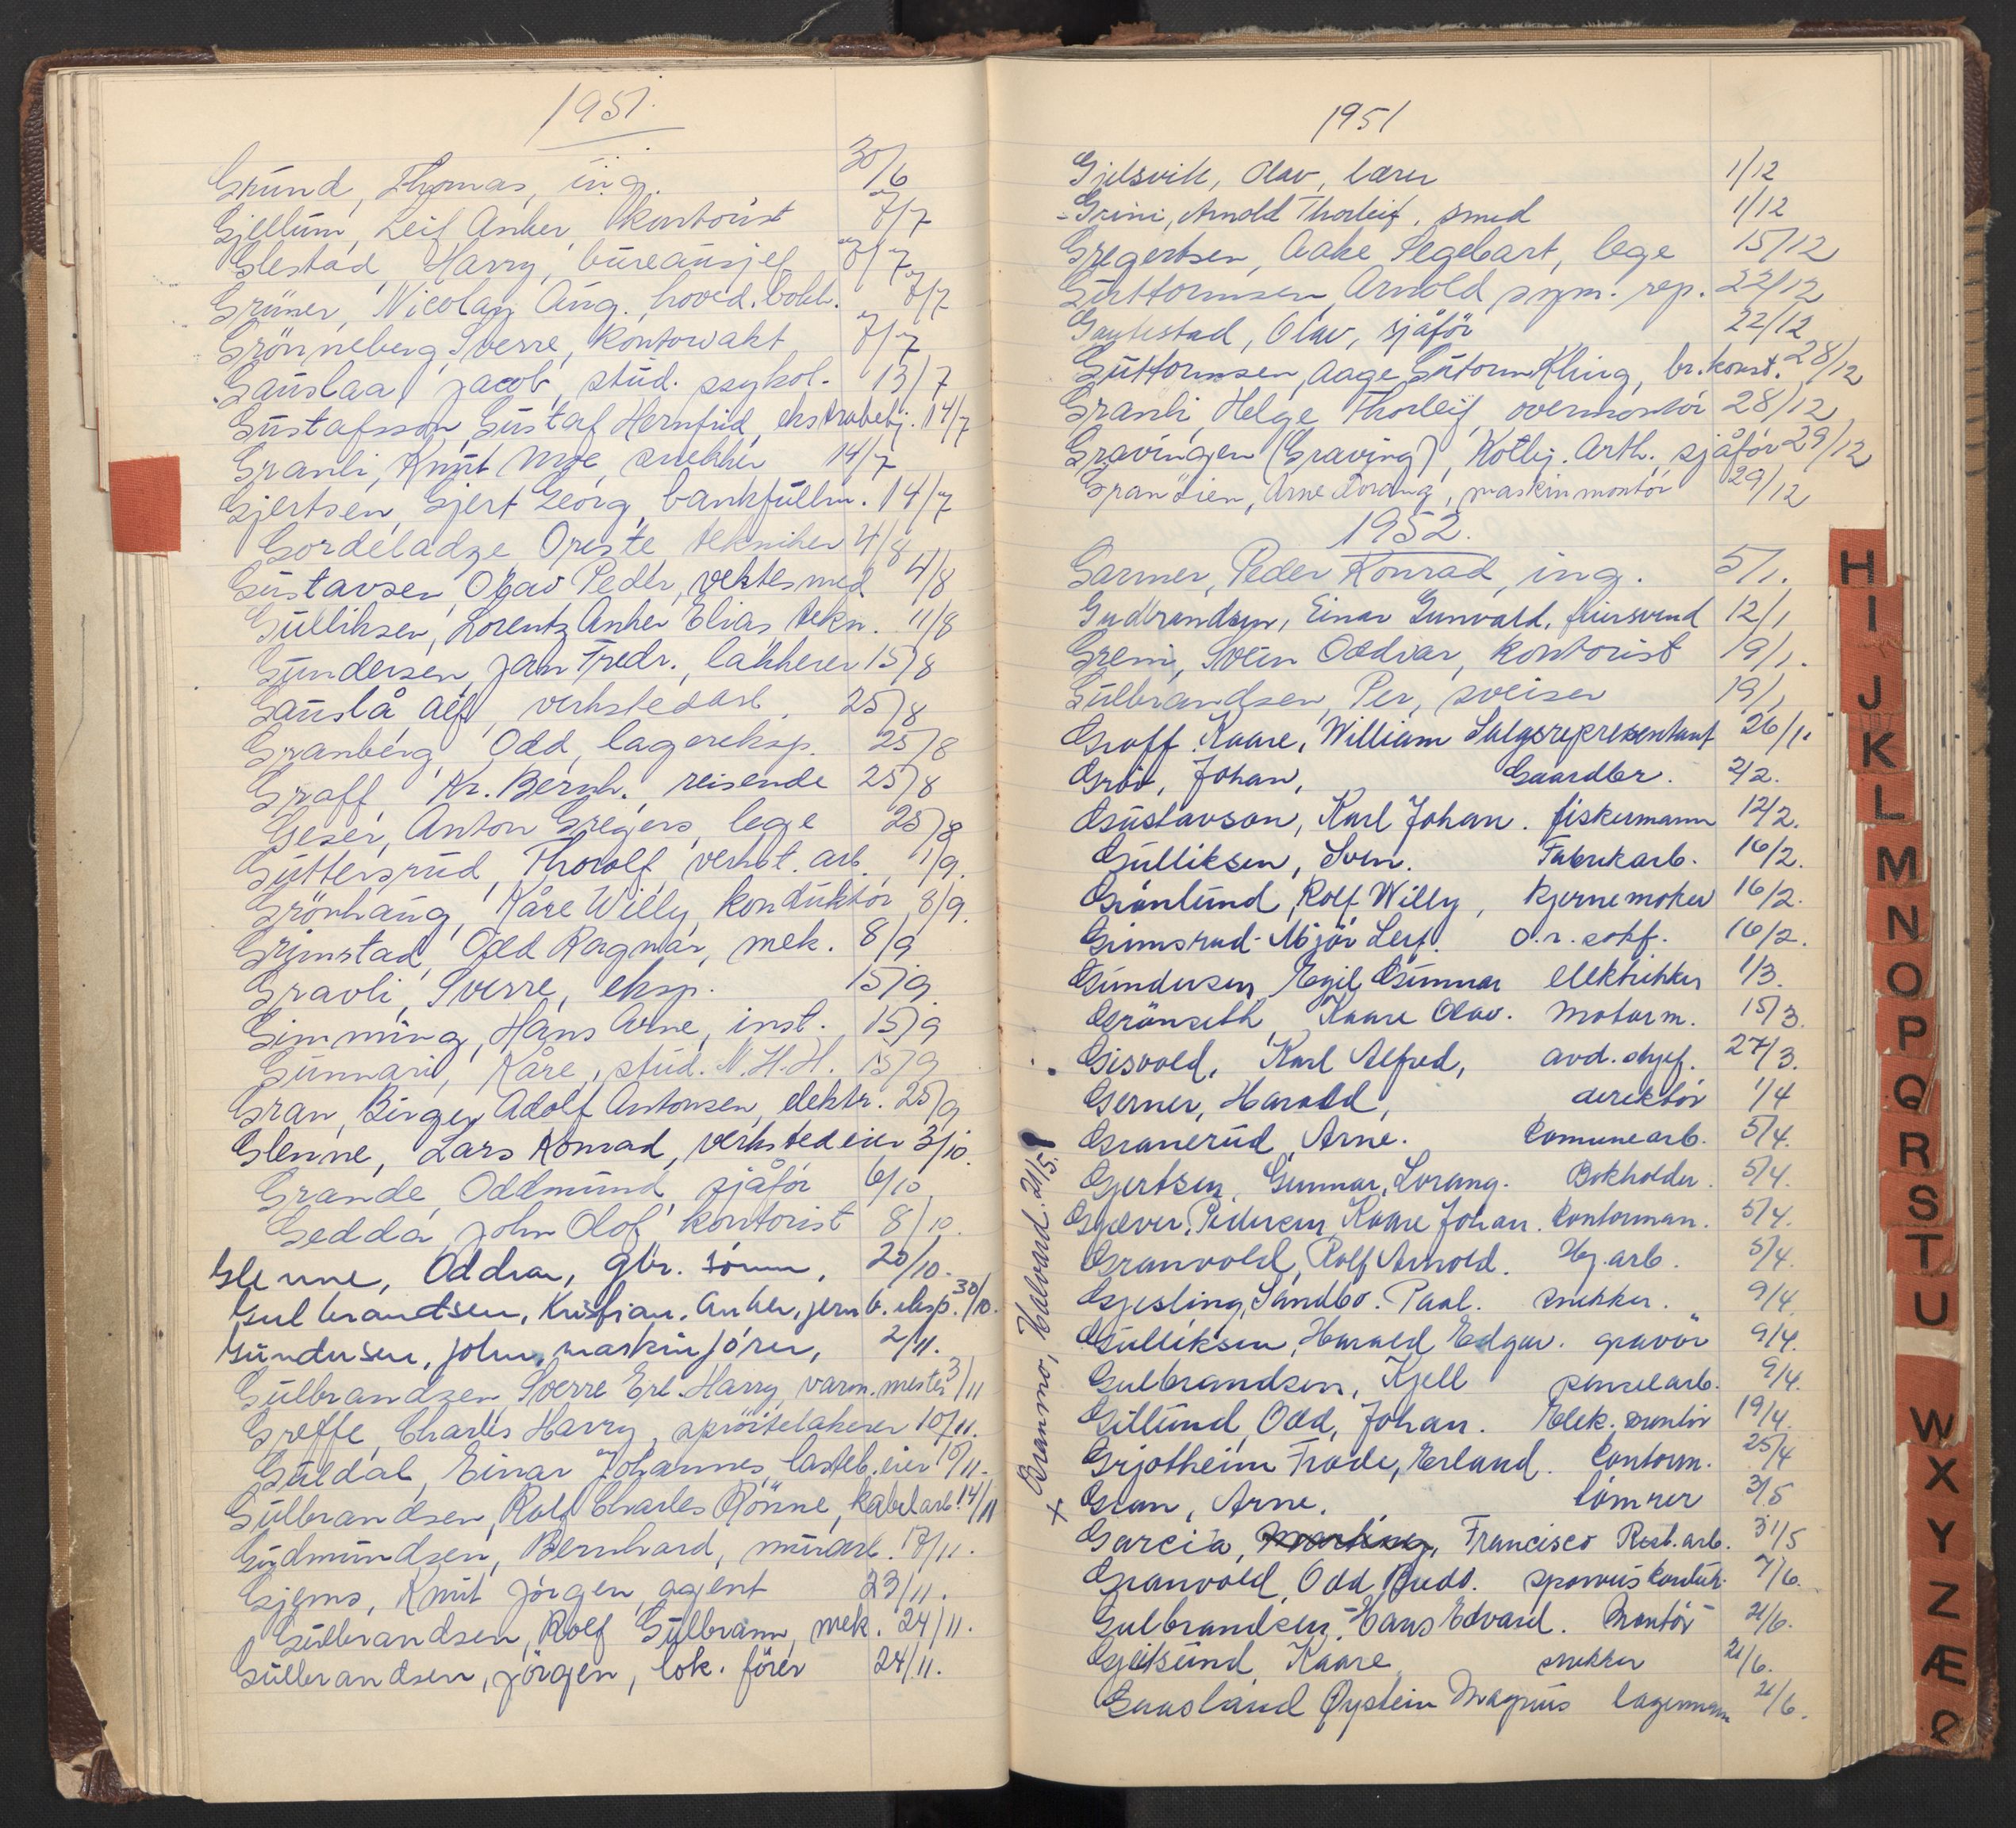 1951.
Grund, Thomas, ing. 30/6
Gjellum, Leif Anker, kontorist 7/7
Glestad, Harry, bureausjef 7/7
Grüner, Nicolay Aug. hoved.bokh. 7/7
Grönneberg, Sverre, kontorvakt 7/7
Gauslaa, Jacob, stud. psykol. 13/7
Gustafsson, Gustaf Hernfrid, ekstrabetj. 14/7
Granli, Knut Moe, snekker 14/7
Gjertsen, Gjert Georg, bankfullm. 14/7
Gordeladze Oreste, tekniker 4/8
Gustavsen, Olav Peder, vektesmed 4/8
Gulliksen, Lorentz Anker Elias, tekn. 11/8
Gundersen, Jan Fredr., lakkerer 15/8
Gauslå Alf, verkstedarb. 25/8
Granberg, Odd, lagereksp. 25/8
Graff, Kr. Bernh. reisende 25/8
Geser, Anton Gregers, lege 25/8
Guttersrud, Thorolf, verkst. arb., 1/9.
Grönhaug, Kåre Willy, konduktör, 8/9.
Grimstad, Odd Ragnar, mek. 8/9
Gravli, Sverre, eksp. 15/9.
Gimming, Hans Arne, inst. 15/9
Gunnari, Kåre, stud. N.H.H. 15/9
Gran, Birger Adolf Antonsen, elektr. 25/9
Glenne, Lars Konrad, verksted eier 3/10.
Grande, Oddmund, sjåför 6/10
Gedda, John Olof, kontorist 8/10.
Glenne, Oddvar, gbr. sönn, 20/10.
Gulbrandsen, Kristian. Anker, jernb. eksp. 30/10.
Gundersen, John, maskinförer, 2/11.
Gulbrandsen, Sverre Erl. Harry, varm. mester 3/11
Greffe, Charles Harry, spröitelakerer 10/11.
Guldal, Einar Johannes, lasteb. eier 10/11.
Gulbrandsen, Rolf Charles Rönne, kabelarb. 14/11
Gudmundsen, Bernhard, murarb. 17/11.
Gjems, Knut Jörgen, agent 23/11.
Gulbrandsen, Rolf Gulbrann, mek. 24/11.
Gulbrandsen, Jörgen, lok. förer 24/11.
1951
Gjelsvik, Olav, lærer 1/12
- Grini, Arnold Thorleif, smed 1/12
Gregertsen, Aake Segebart, lege 15/12
Guttormsen, Arnold, sym. rep. 22/12
Gautestad, Olav, sjåför 22/12
Guttormsen, Aage Gutorm Kling, br.konst. 28/12
Granli, Helge Thorleif, overmontör 28/12
Gravingen (Graving), Kolbj. Arth. sjåför 29/12
Granlien, Arne Lorang, maskinmontör 29/12
1952.
Garmer, Peder Konrad, ing. 5/1.
Gudbrandsen, Einar Gunvald, feiersvend 12/1
Greni, Svein Oddvar, kontorist 19/1.
Gulbrandsen, Per, sveiser 19/1
Graff. Kaare, William Salgsrepresentant 26/1.
Grov, Johan, Gaardbr. 2/2.
Gustavson, Karl Johan. fiskermann 12/2.
Gulliksen, Sven. Fabrikarb. 16/2.
Grönlund, Rolf Willy, Kjernemaker 16/2.
Grimsrud-Mjör Leif. O.r. sakf. 16/2.
Gundersen, Egil Gunnar elektriker 1/3.
Grönseth, Kaare Olav. Motorm. 15/3.
Gisvold, Karl Alfred, avd. sjef. 27/3.
Gerner, Harald, direktör 1/4
Granerud, Arne. Comunearb. 5/4.
Gjertsen, Gunnar, Lorang. Bokholder. 5/4.
Gjæver, Pedersen Kaare Johan. Contorman. 5/4.
Granvold, Rolf Arnold. Hj. arb. 5/4.
Gjesling, Sandbo. Paal. snekker. 9/4.
Gulliksen, Harald Edgar. gravör 9/4.
Gulbrandsen, Kjell panselarb. 9/4.
Gillund, Odd, Johan. Elek. montör 19/4.
Grjotheim Frode, Erland. Contorm. 25/4
Gran, Arne. tömrer 3/5
Garcia, Martinez, Francisco Rest. arb. 31/5
Granvold, Odd, Budt. sporveiskonduk. 7/6.
Gulbrandsen, Hans Edvard. Montör 21/6.
Gjeitsund, Kaare snekker 21/6.
Gaasland Øystein Magnus lagermann 21/6.
+ Branmo, Halvard. 21/5.
H
I
J
K
L
M
N
O
P
Q
R
S
T
U
W
X
Y
Z
Æ